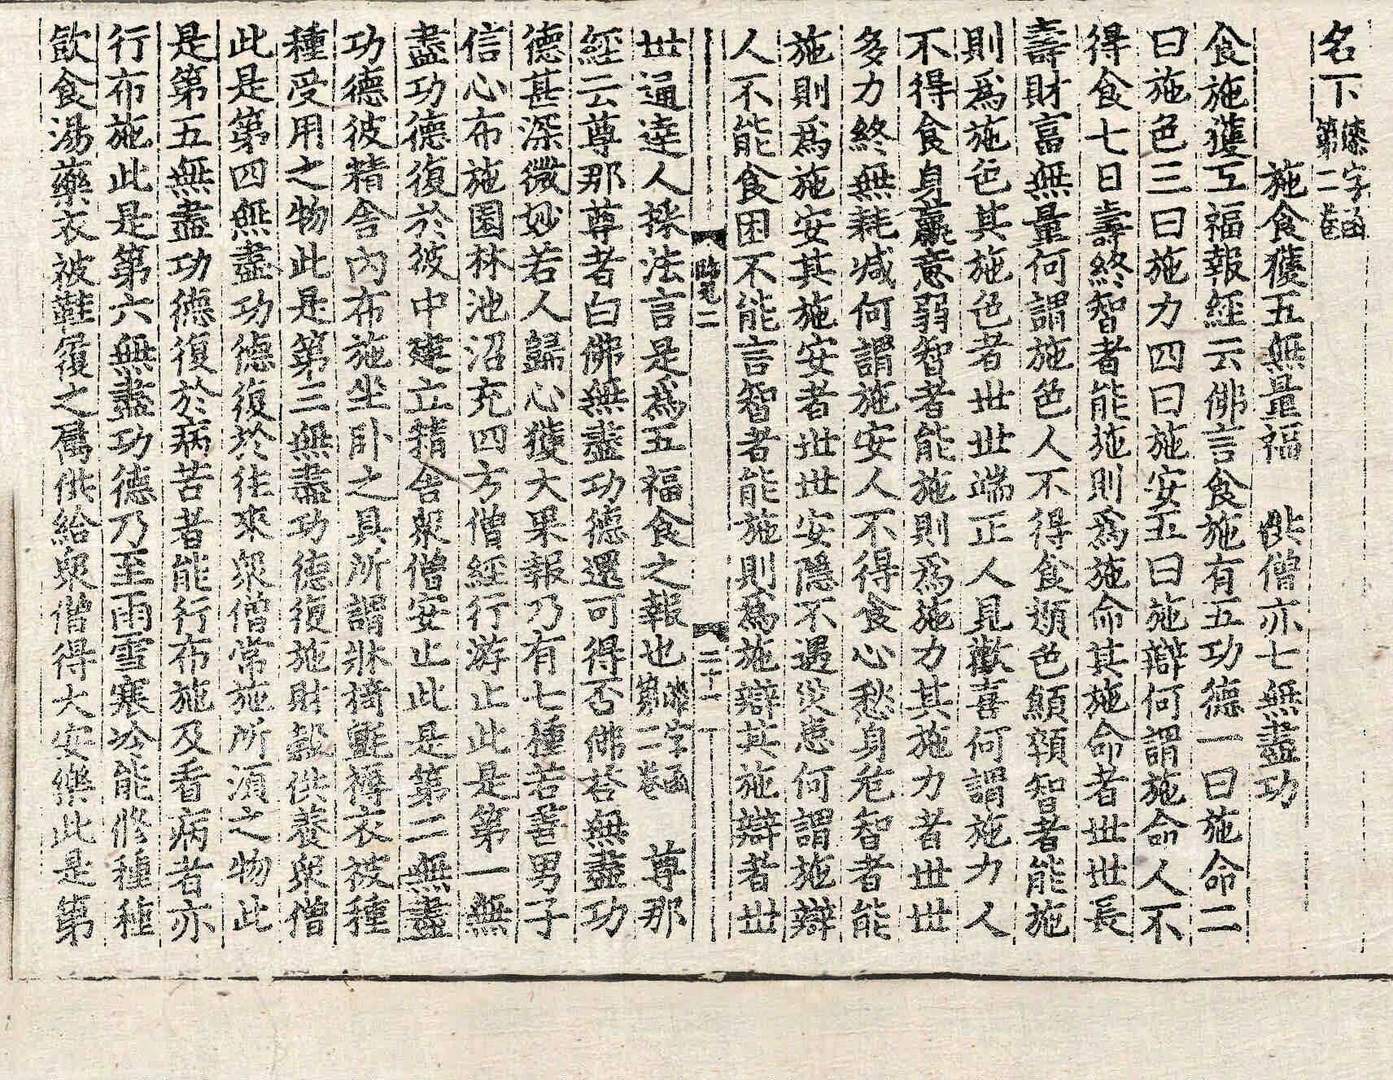 名下漆字函第二卷
施食獲五無量福　供僧亦七無盡功
食施獲五福報經云佛言食施有五功德一曰施命二
曰施色三曰施力四曰施安五曰施辯何謂施命人不
得食七日壽終智者能施則爲施命其施命者世世長
壽財富無量何謂施色人不得食頮色顛顇智者能施
則爲施色其施色者世世端正人見歡喜何謂施力人
不得食身羸意弱智者能施則爲施力其施力者世世
多力終無耗減何謂施安人不得食心愁身危智者能
施則爲施安其施安者世世安隱不遇災患何謂施辯
人不能食困不能言智者能施則爲施辯其施辯者世
二十一
世通達人採法言是爲五福食之報也漆字函第二卷　尊那
經云尊那尊者白佛無盡功德還可得否佛答無盡功
德甚深微妙若人歸心獲大果報乃有七種若善男子
信心布施園林池沼充四方僧經行游止此是第一無
盡功德復於彼中建立精舍衆僧安止此是第二無盡
功德彼精舍內布施坐卧之具所謂牀椅氈褥衣被種
種受用之物此是第三無盡功德復施財穀供養衆僧
此是第四無盡功德復於往來衆僧常施所須之物此
是第五無盡功德復於病苦者能行布施及看病者亦
行布施此是第六無盡功德乃至雨雪寒冷能修種種
飲食湯藥衣被鞋履之屬供給衆僧得大安樂此是第